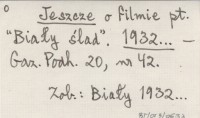 Jeszcze o filmie pt.
"Biały ślad". 1932... –
Gaz. Podh. 20, nr 42.
Zob.: Biały 1932...